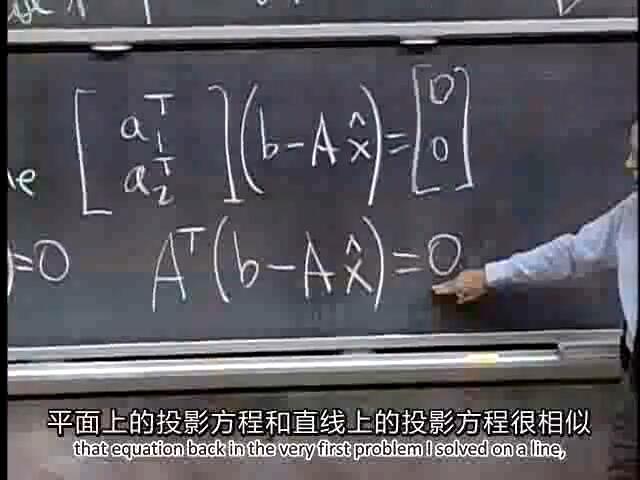 [a₁ᵀ
a₂ᵀ] (b - A x̂) = [0
0]
=0 Aᵀ(b - A x̂) = 0
平面上的投影方程和直线上的投影方程很相似
that equation back in the very first problem I solved on a line,